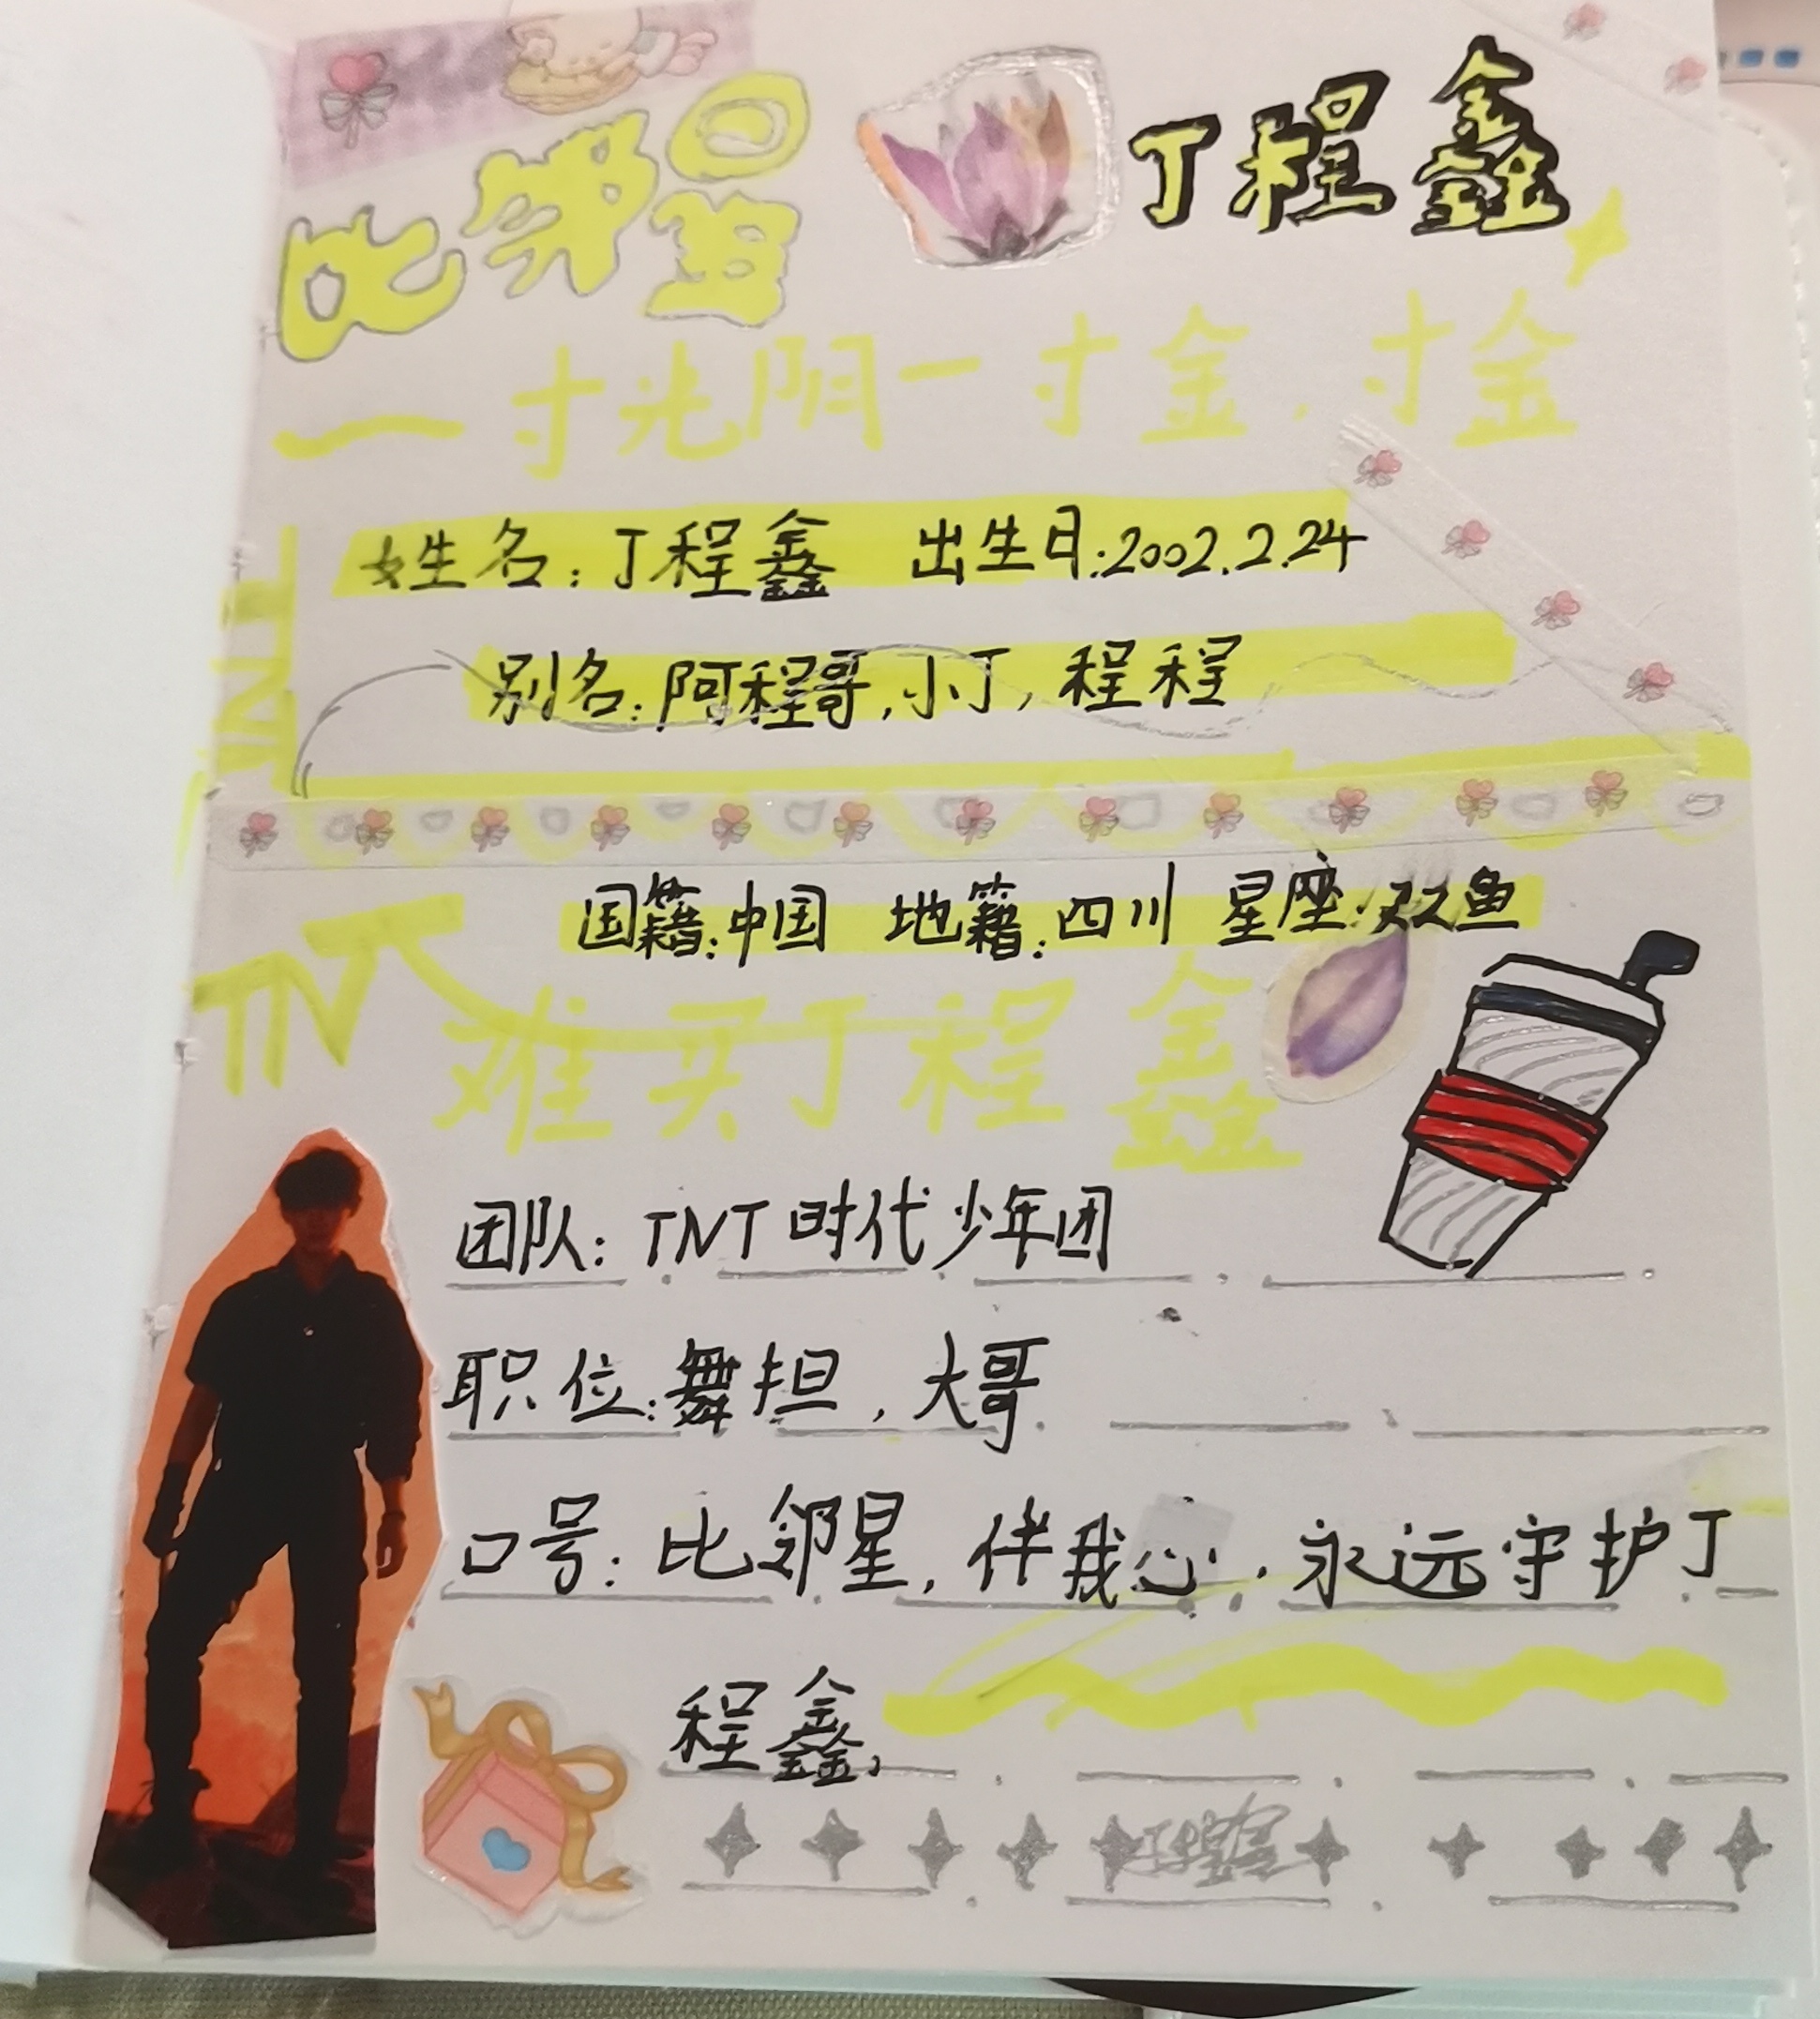 比邻星 丁程鑫
一寸光阴一寸金，寸金
姓名：丁程鑫 出生日：2002.2.24
TNT
别名：阿程哥，小丁，程程
国籍：中国 地籍：四川 星座：双鱼
TNT
难买丁程鑫
团队：TNT时代少年团
职位：舞担，大哥
口号：比邻星，伴我心，永远守护丁
程鑫，
丁程鑫